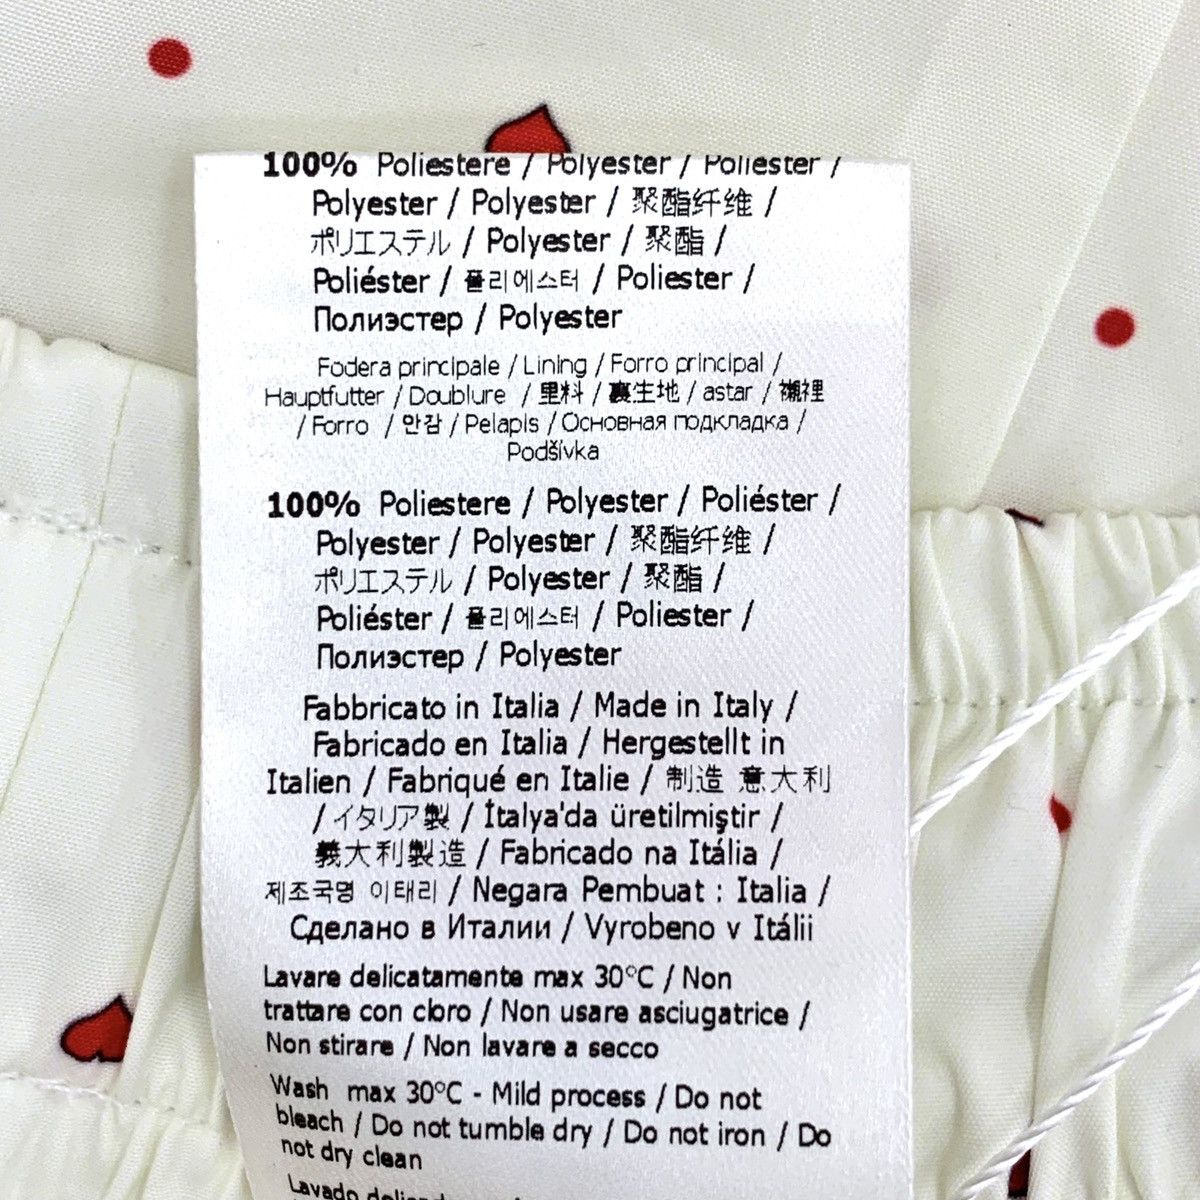 100% Poliestere / Polyester / Poliéster /
Polyester / Polyester / 聚酯纤维 /
ポリエステル / Polyester / 聚酯 /
Poliéster / 폴리에스터 / Poliester /
Полиэстер / Polyester
Fodera principale / Lining / Forro principal /
Hauptfutter / Doublure / 里料 / 裏生地 / astar / 襯裡
/ Forro / 안감 / Pelapis / Основная подкладка /
Podšívka
100% Poliestere / Polyester / Poliéster /
Polyester / Polyester / 聚酯纤维 /
ポリエステル / Polyester / 聚酯 /
Poliéster / 폴리에스터 / Poliester /
Полиэстер / Polyester
Fabbricato in Italia / Made in Italy /
Fabricado en Italia / Hergestellt in
Italien / Fabriqué en Italie / 制造 意大利
/ イタリア製 / İtalya'da üretilmiştir /
義大利製造 / Fabricado na Itália /
제조국명 이태리 / Negara Pembuat : Italia /
Сделано в Италии / Vyrobeno v Itálii
Lavare delicatamente max 30°C / Non
trattare con cloro / Non usare asciugatrice /
Non stirare / Non lavare a secco
Wash max 30°C - Mild process / Do not
bleach / Do not tumble dry / Do not iron / Do
not dry clean
Lavado